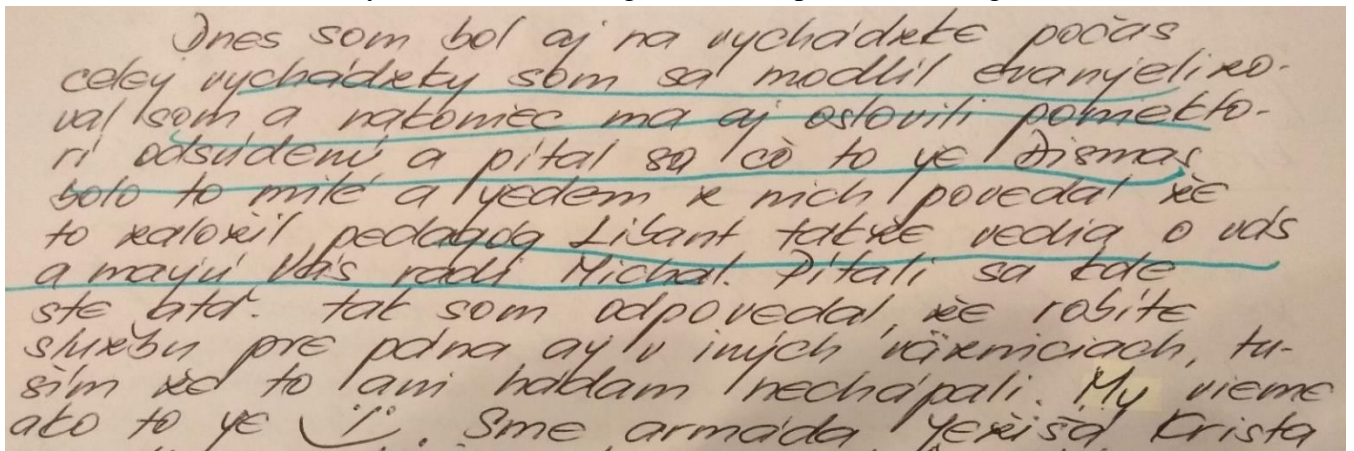 Dnes som bol aj na vychádzke počas
celey vychádzky som sa modlil evanjelizo-
val som a nakoniec ma aj oslovili poniekto-
rí odsúdení a pítal sa čo to ye Dismas
bolo to milé a yedem z nich povedal že
to založil pedagóg Libant takže vedia o vás
a mayú Vás radi Michal. Pítali sa kde
ste atď. tak som odpovedal, že robíte
službu pre pána ay v iných väzniciach, tu-
ším že to ani hádam nechápali. My vieme
ako to ye. Sme armáda Yežiša Krista